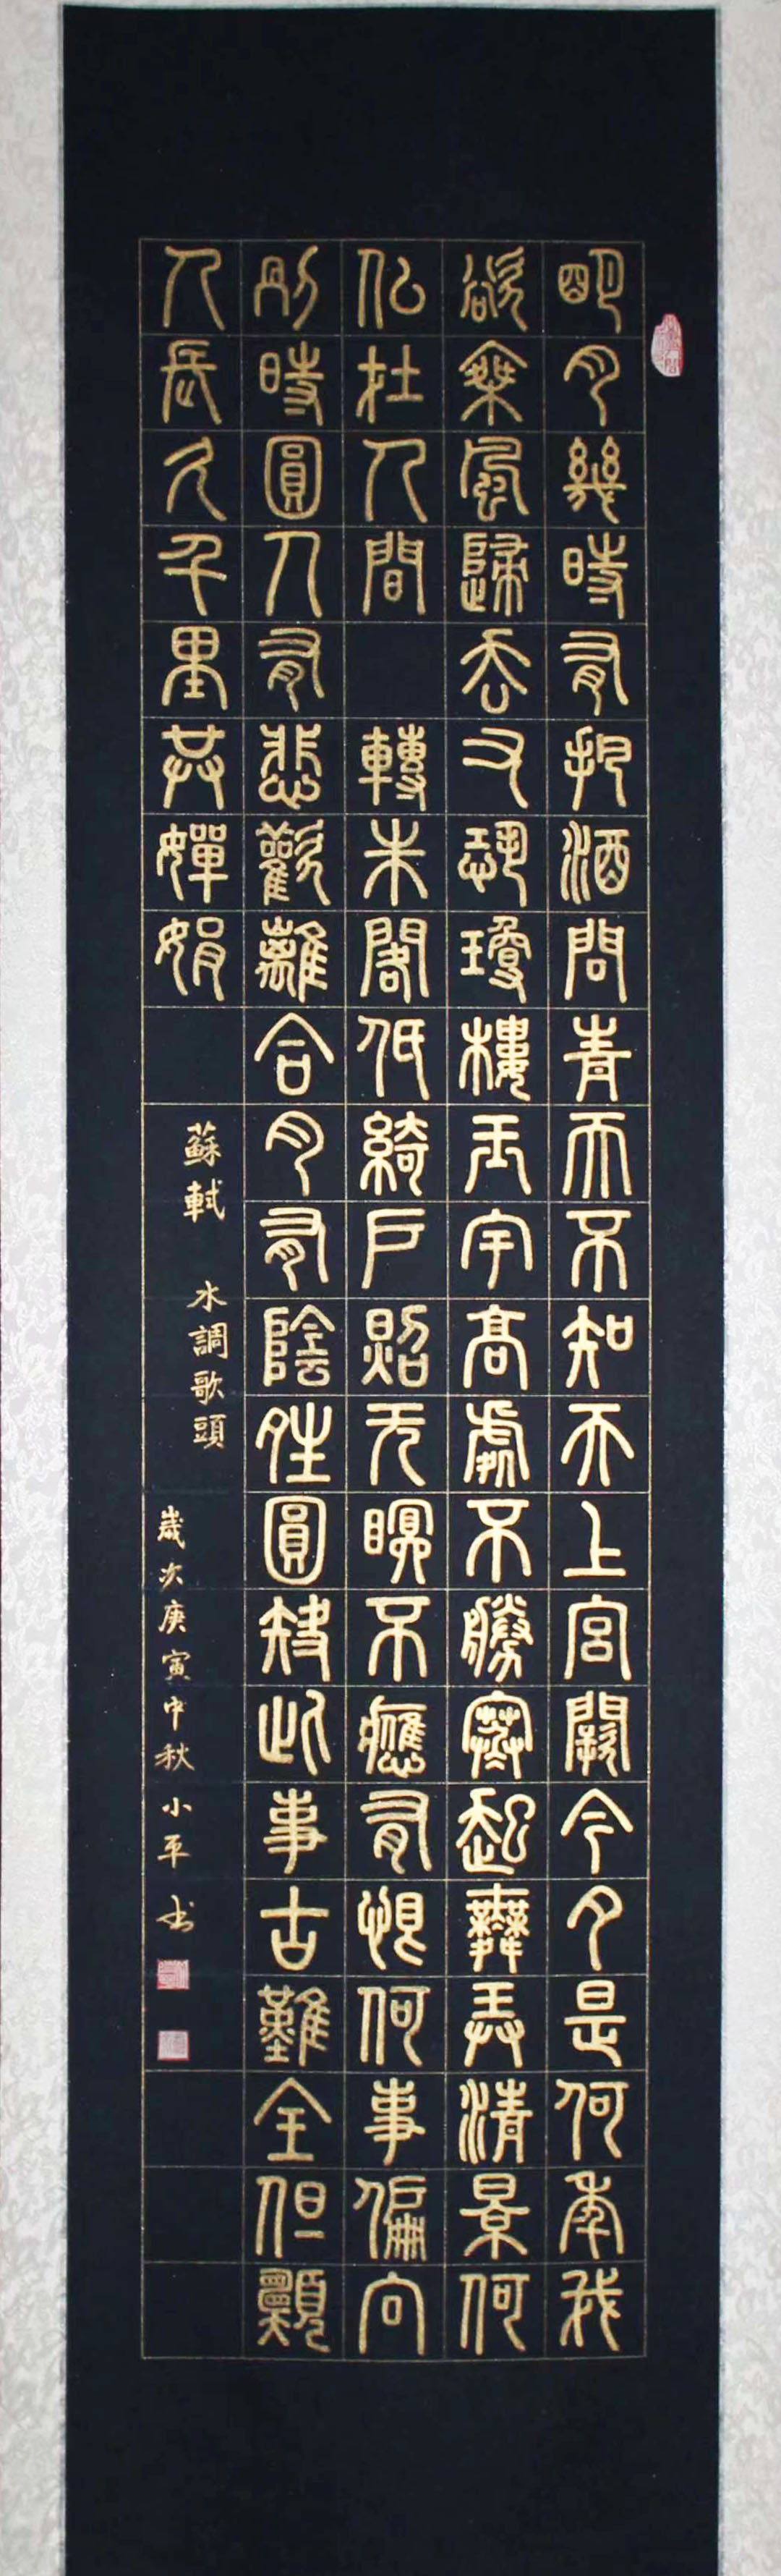 明月幾時有把酒問青天不知天上宮闕今夕是何年我
欲乘風歸去又恐瓊樓玉宇高處不勝寒起舞弄清景何
似在人間 轉朱閣低綺戶照无眠不應有恨何事偏向
別時圓人有悲歡離合月有陰晴圓缺此事古難全但願
人長久千里共嬋娟
蘇軾 水調歌頭
歲次庚寅中秋小平书